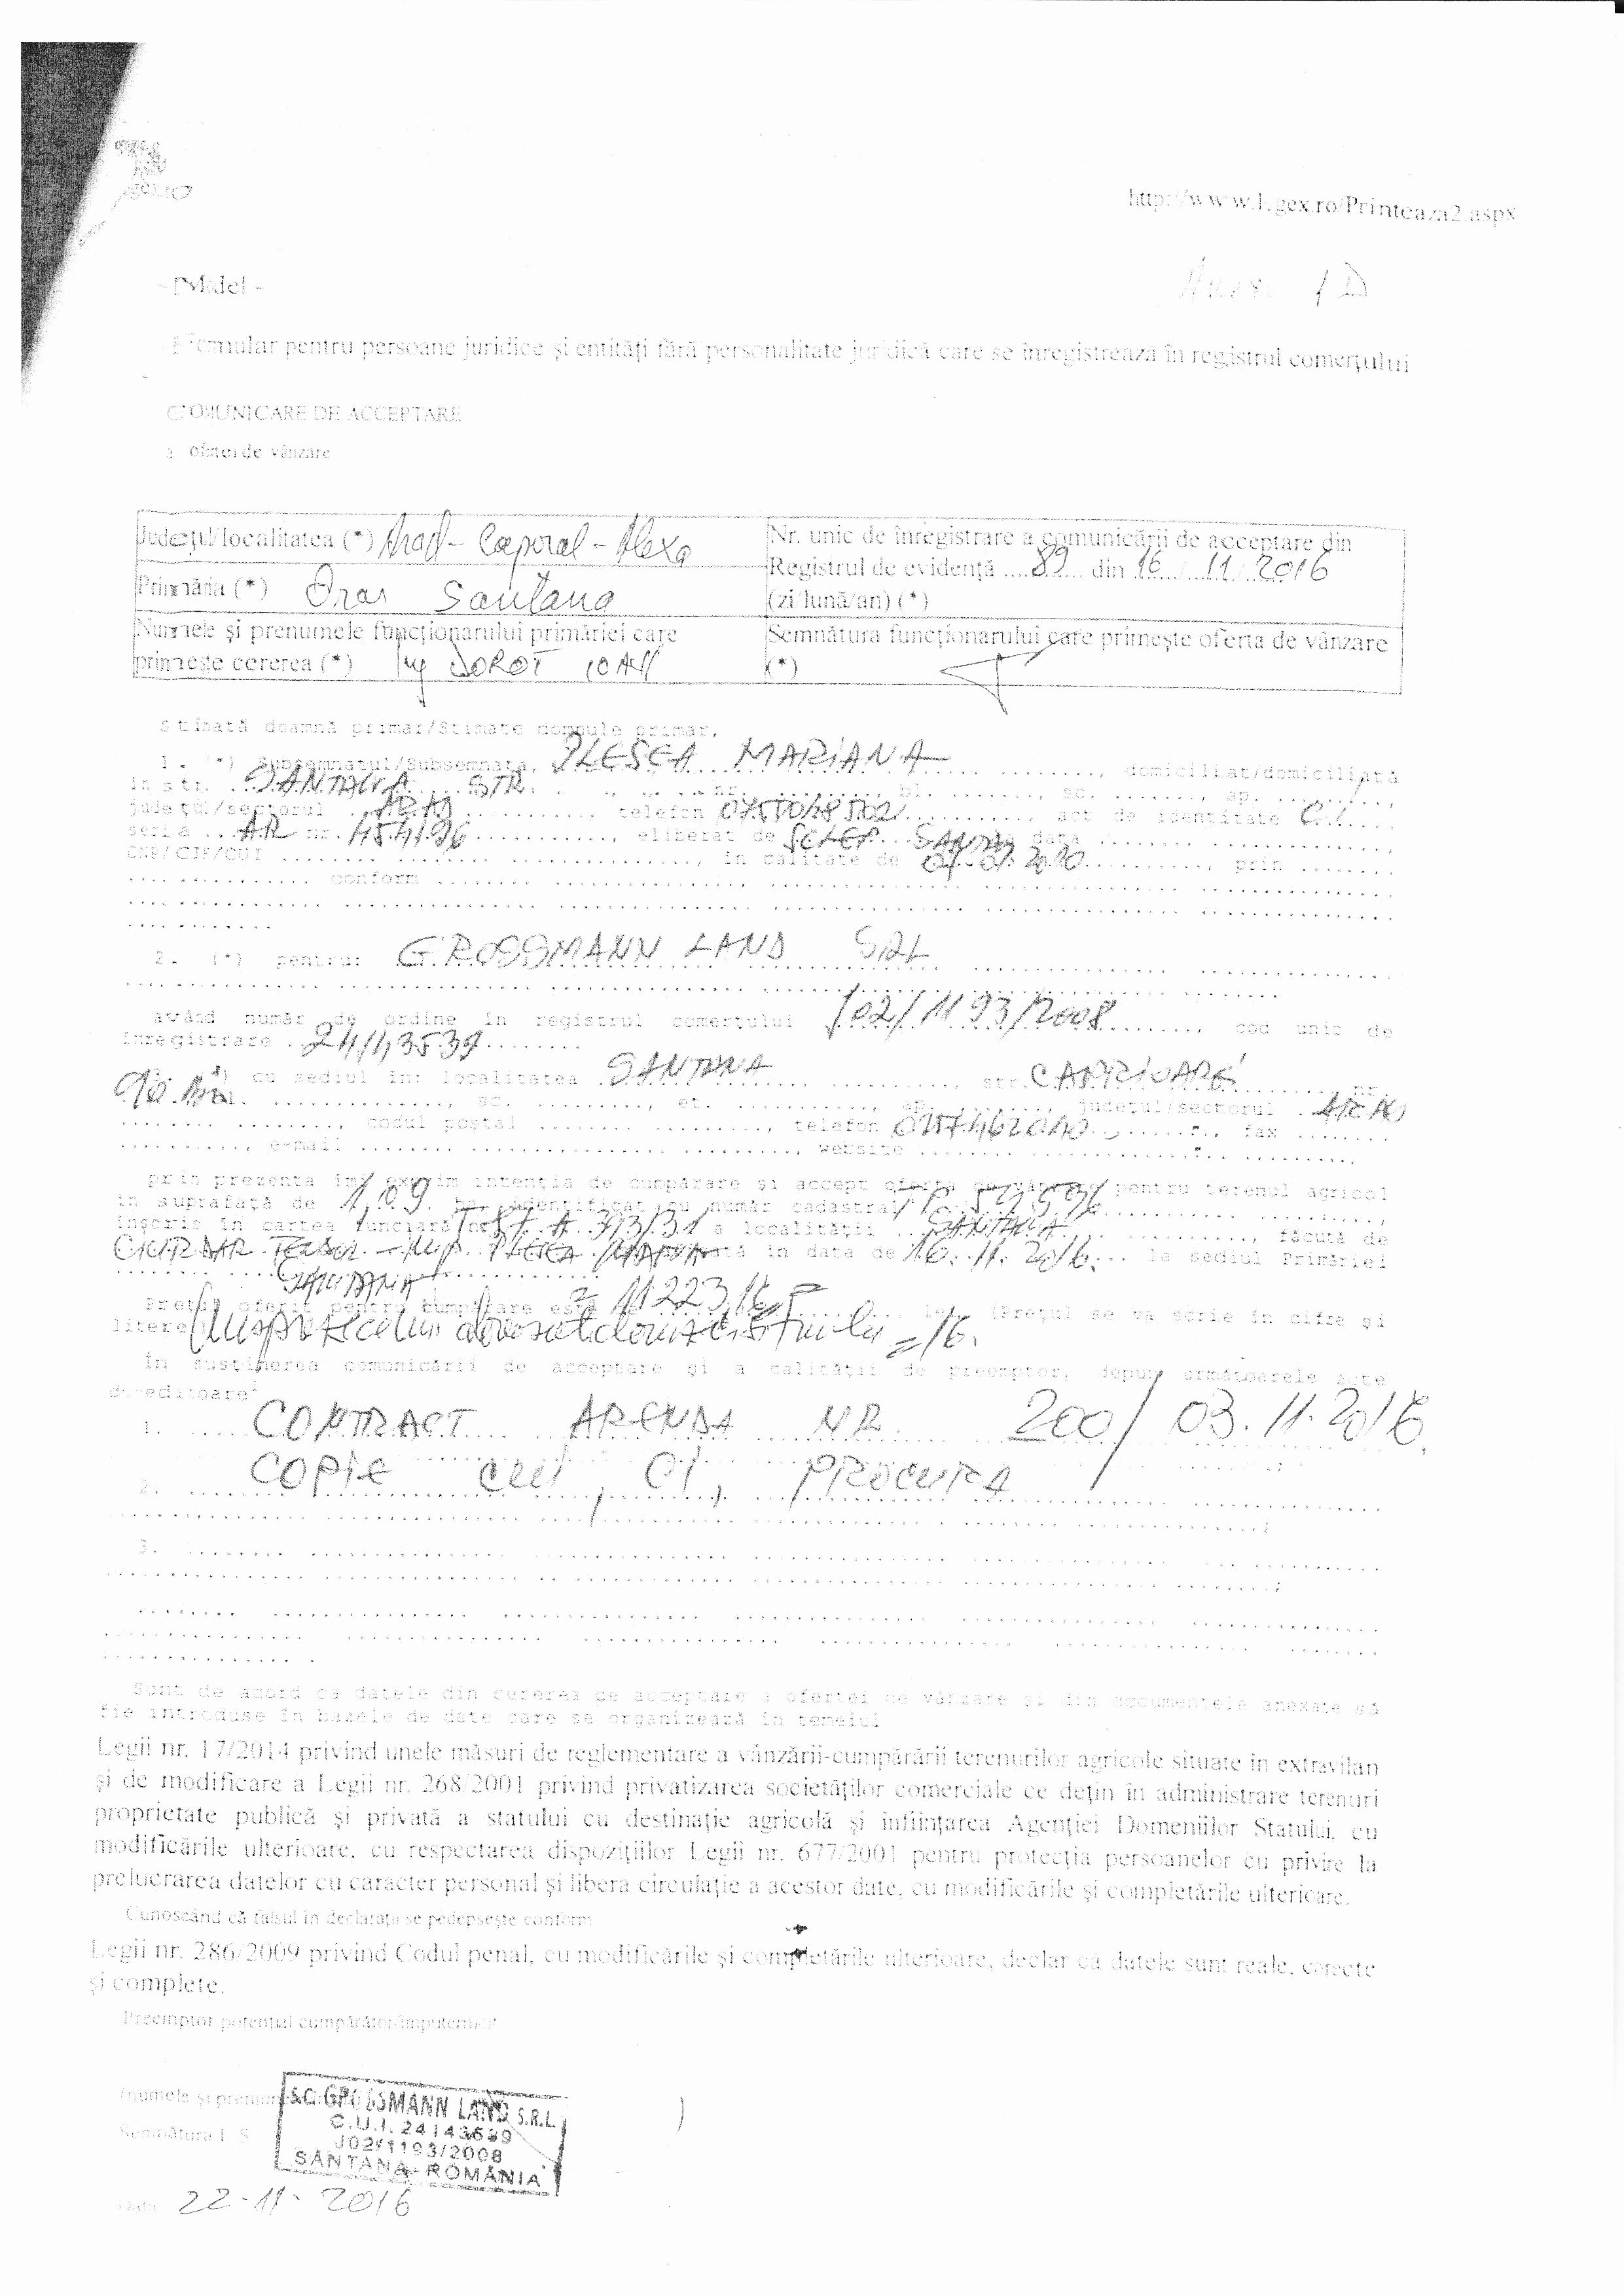 http://www.1.gex.ro/Printeaza2.aspx
- Model -
1D
Formular pentru persoane juridice și entități fără personalitate juridică care se înregistrează în registrul comerțului
COMUNICARE DE ACCEPTARE
a ofertei de vânzare
Județul/localitatea (*) Arad - Caporal - Alexa
Nr. unic de înregistrare a comunicării de acceptare din
Registrul de evidență ....89..... din 16 / 11 / 2016
(zi/lună/an) (*)
Primăria (*) Oras Santana
Numele și prenumele funcționarului primăriei care
primește cererea (*) Ing DOROT IOAN
Semnătura funcționarului care primește oferta de vânzare
(*)
Stimată doamnă primar/Stimate domnule primar,
1. (*) Subsemnatul/Subsemnata, PLESCA MARIANA, domiciliat/domiciliată
în str. SANTANA STR. nr. ......, bl. ......, sc. ......, ap. ......,
județul/sectorul ARAD telefon act de identitate C.I.
seria AR nr. 454196, eliberat de SCLEP SANTANA data
CNP/CIF/CUI ......, în calitate de , prin
conform
2. (*) pentru: GROSSMANN LAND SRL
având număr de ordine în registrul comerțului J02/1193/2008, cod unic de
înregistrare 24143539
3. (*) cu sediul în: localitatea SANTANA, str. CAPRIOAREI nr.
sc. ......, et. ......, ap. ......, județul/sectorul ARAD
codul poștal ......, telefon , fax
e-mail ......, website
prin prezenta îmi exprim intenția de cumpărare și accept oferta de vânzare pentru terenul agricol
în suprafață de 1,09 ha, identificat cu număr cadastral
înscris în cartea funciară nr. a localității SANTANA, făcută de
PLESCA MARIANA în data de 16.11.2016 la sediul Primăriei
SANTANA
Prețul oferit pentru cumpărare este = 11223,16 = lei. (Prețul se va scrie în cifre și
litere
În susținerea comunicării de acceptare și a calității de preemptor, depun următoarele acte
doveditoare:
1. CONTRACT ARENDA NR 200/ 03.11.2016
2. COPIE CUI, CI, PROCURA
3.
Sunt de acord ca datele din cererea de acceptare a ofertei de vânzare și din documentele anexate să
fie introduse în bazele de date care se organizează în temeiul
Legii nr. 17/2014 privind unele măsuri de reglementare a vânzării-cumpărării terenurilor agricole situate în extravilan
și de modificare a Legii nr. 268/2001 privind privatizarea societăților comerciale ce dețin în administrare terenuri
proprietate publică și privată a statului cu destinație agricolă și înființarea Agenției Domeniilor Statului, cu
modificările ulterioare, cu respectarea dispozițiilor Legii nr. 677/2001 pentru protecția persoanelor cu privire la
prelucrarea datelor cu caracter personal și libera circulație a acestor date, cu modificările și completările ulterioare.
Cunoscând că falsul în declarații se pedepsește conform
Legii nr. 286/2009 privind Codul penal, cu modificările și completările ulterioare, declar că datele sunt reale, corecte
și complete.
Preemptor potențial cumpărător/împuternicit
(numele și prenumele
S.C. GROSSMANN LAND S.R.L.
C.U.I. 24143539
J02/1193/2008
SÂNTANA - ROMÂNIA
Semnătura L.S.
Data 22.11.2016